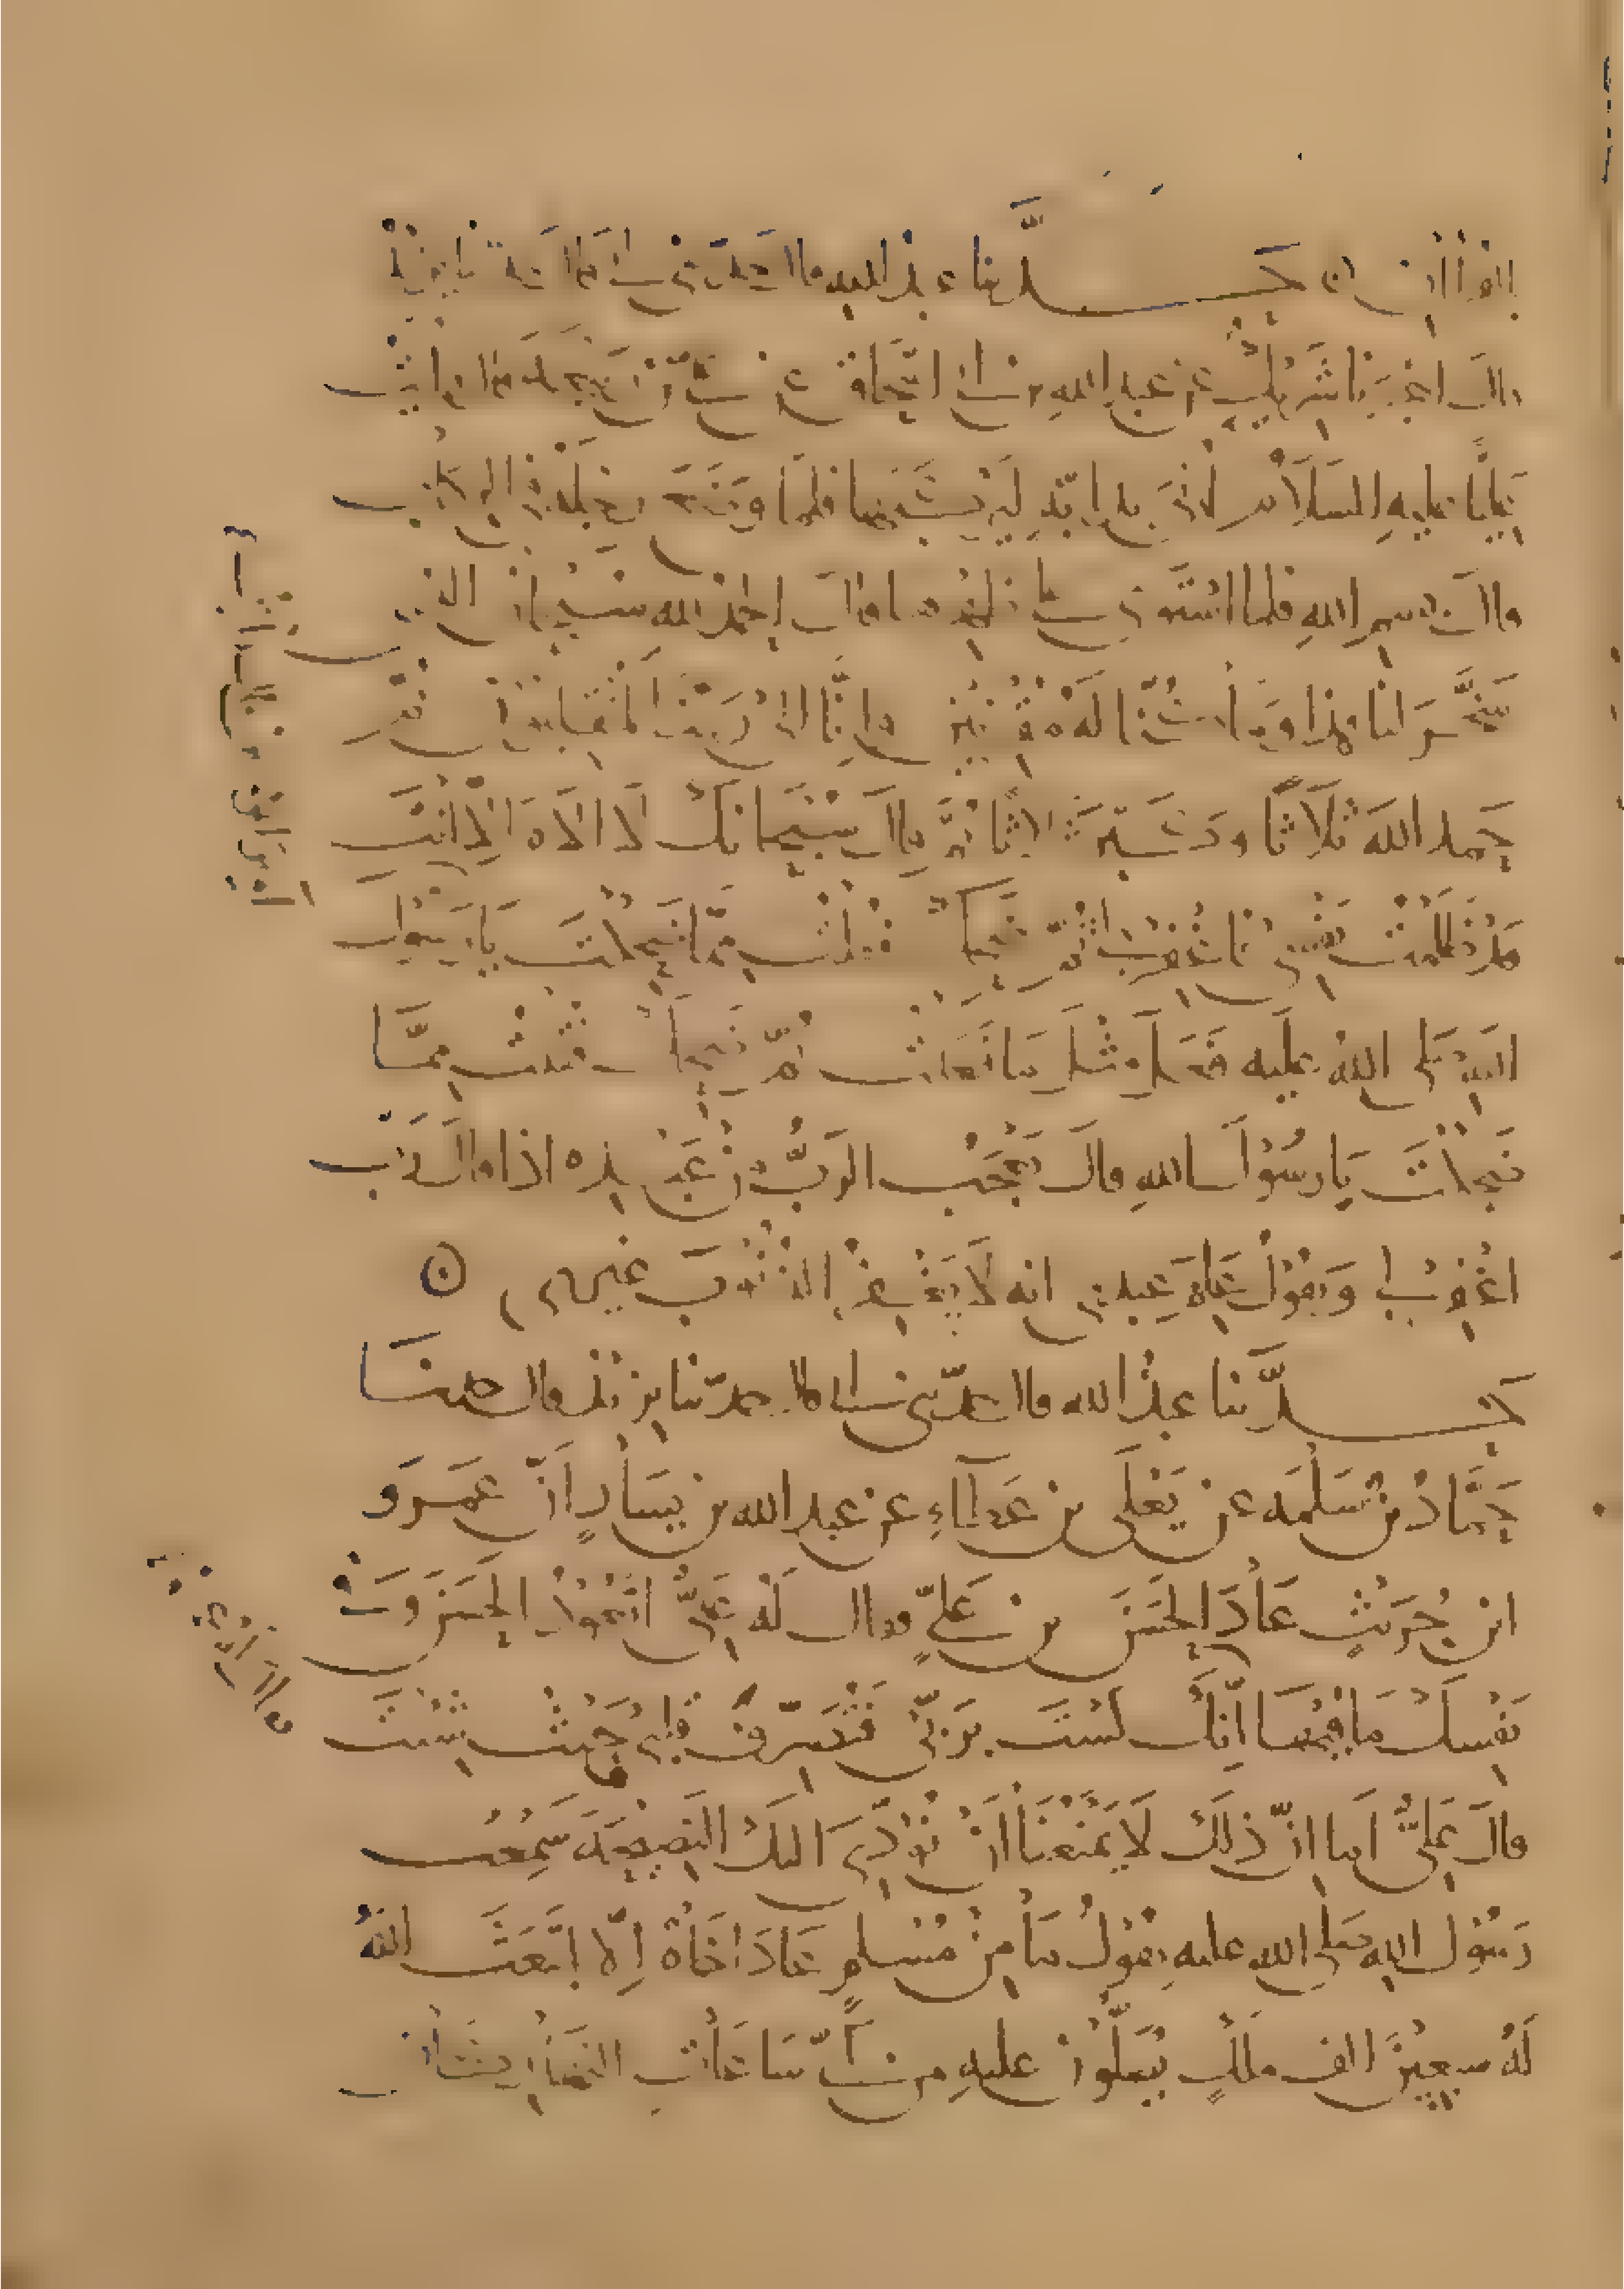 بالقرآن حدثنا عبد الله قال حدثني أبي قال حدثنا يزيد
قال اخبرنا شريك عن عبد الله عن ابي اسحاق عن علي بن ربيعة قال رأيت
عليًا عليه السلام أتي بدابة ليركبها فلما وضع رجله في الركاب
قال بسم الله فلما استوى عليها قال الحمد لله سبحان الذي
سخر لنا هذا وما كنا له مقرنين وإنا إلى ربنا لمنقلبون ثم
حمد الله ثلاثًا وكبر ثلاثًا ثم قال سبحانك لا اله إلا انت
قد ظلمت نفسي فاغفر لي ثم ضحك فقلت مم ضحكت يا رسول
الله صلى الله عليه فعل مثل ما فعلت ثم ضحك فقلت مما
ضحكت يا رسول الله قال تعجب الرب من عبده اذا قال رب
اغفر لي ويقول علم عبدي انه لا يغفر الذنوب غيري
حدثنا عبد الله قال حدثني ابي قال حدثنا يزيد قال حدثنا
حماد بن سلمه عن يعلى بن عطاء عن عبد الله بن يسار أن عمرو
ابن حريث عاد الحسن بن علي فقال له علي اتعود الحسن وفي
نفسك ما فيها إنك لست بربي فتصرف قلبي حيث شئت
قال علي اما ان ذلك لا يمنعنا أن نؤدي اليك النصيحة سمعت
رسول الله صلى الله عليه يقول ما من مسلم عاد اخاه إلا ابتعث الله
له سبعين الف ملك يصلون عليه من أي ساعات النهار كان